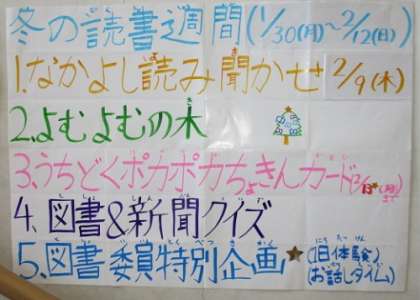 冬の読書週間(1/30(月)～2/12(日))
1.なかよし読み聞かせ 2/9(木)
2.よむよむの木
3.うちどくポカポカちょきんカード(2/13(月)まで)
4.図書&新聞クイズ
5.図書委員特別企画★(1日体験)(お話しタイム)